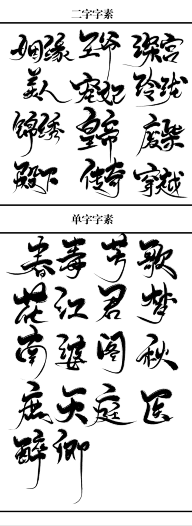 二字字素
姻缘 王爷 深宫
美人 宠妃 玲珑
锦绣 皇帝 废柴
殿下 传奇 穿越
单字字素
春 毒 芳 歌
花 江 君 梦
南 婆 阁 秋
庶 天 庭 医
醉 卿